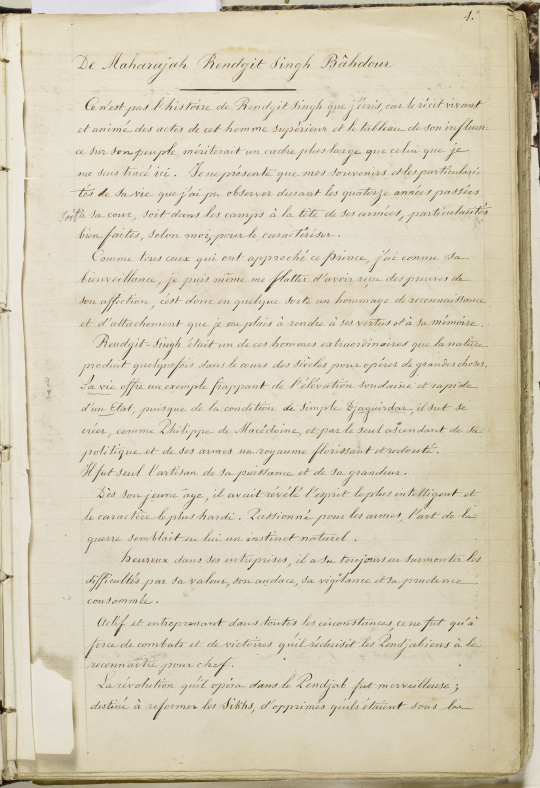 1.
De Maharajah Rendgit Singh Bâhdour
Ce n'est pas l'histoire de Rendgit Singh que j'écris, car le récit vivant
et animé des actes de cet homme supérieur et le tableau de son influen-
ce sur son peuple, mériterait un cadre plus large que celui que je
me suis tracé ici. Je ne présente que mes souvenirs et les particulari-
tés de sa vie que j'ai pu observer durant les quatorze années passées
soit à sa cour, soit dans les camps à la tête de ses armées, particularités
bien faites, selon moi, pour le caractériser.
Comme tous ceux qui ont approché ce prince, j'ai connu sa
bienveillance, je puis même me flatter d'avoir reçu des preuves de
son affection, c'est donc en quelque sorte un hommage de reconnaissance
et d'attachement que je me plais à rendre à ses vertus et à sa mémoire.
Rendgit-Singh était un de ces hommes extraordinaires que la nature
produit quelquefois dans le cours des siècles pour opérer de grandes choses.
Sa vie offre un exemple frappant de l'élévation soudaine et rapide
d'un Etat, puisque de la condition de simple Djaguirdar, il sut se
créer, comme Philippe de Macédoine, et par le seul ascendant de sa
politique et de ses armes un royaume florissant et redouté.
Il fut seul l'artisan de sa puissance et de sa grandeur.
Dès son jeune âge, il avait révélé l'esprit le plus intelligent et
le caractère le plus hardi. Passionné pour les armes, l'art de la
guerre semblait en lui un instinct naturel.
heureux dans ses entreprises, il a su toujours en surmonter les
difficultés par sa valeur, son audace, sa vigilance et sa prudence
consommée.
Actif et entreprenant dans toutes les circonstances, ce ne fut qu'à
force de combats et de victoires qu'il réduisit les Pendjabiens à le
reconnaître pour chef.
La révolution qu'il opéra dans le Pendjab fut merveilleuse;
destiné à reformer les Sikhs, d'opprimés qu'ils étaient sous les